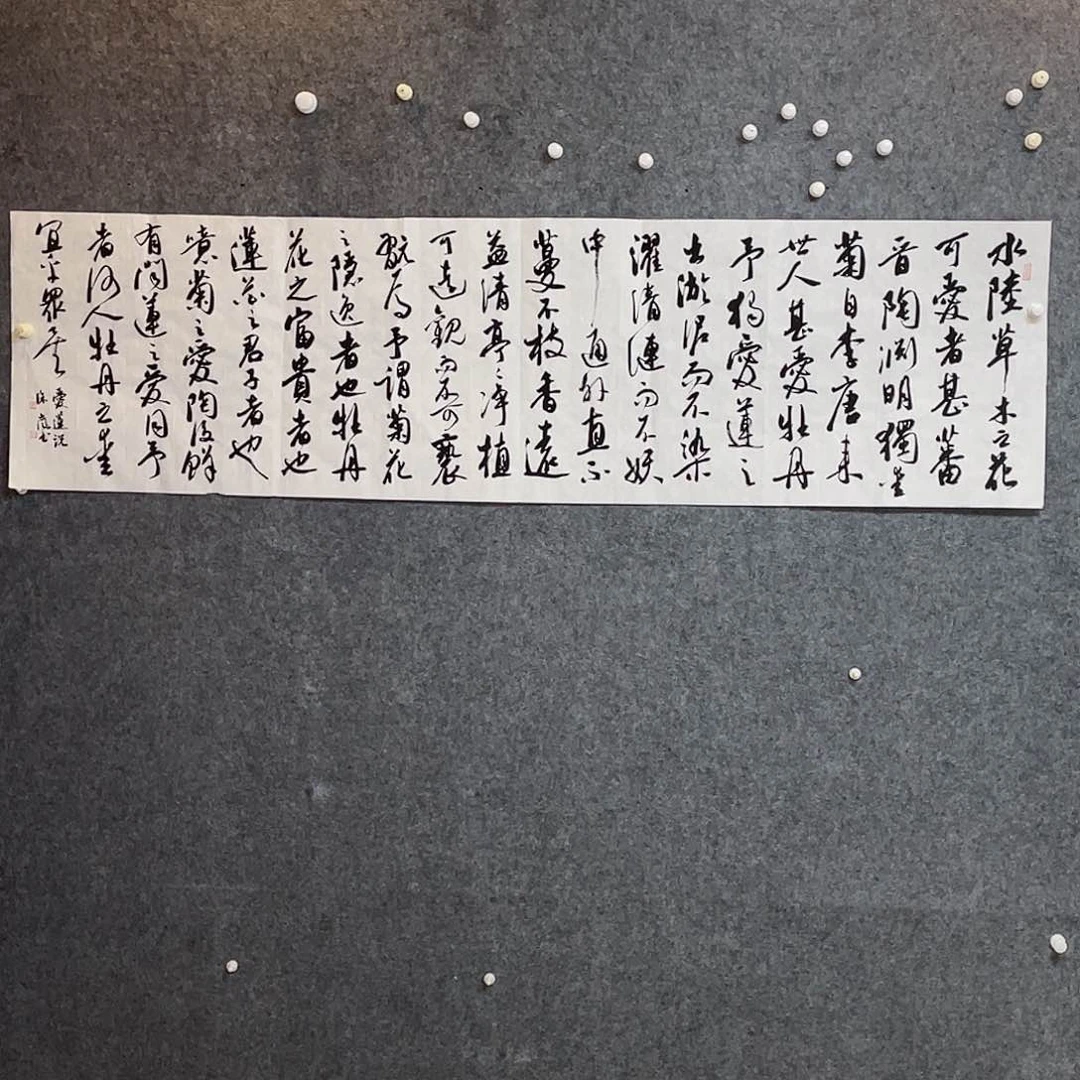 水陸草木之花
可愛者甚蕃
晋陶渊明獨愛
菊自李唐来
世人甚愛牡丹
予独愛蓮之
出淤泥而不染
濯清漣而不妖
中通外直不
蔓不枝香遠
益清亭〻净植
可遠觀而不可褻
翫焉予謂菊花
之隱逸者也牡丹
花之富貴者也
蓮花之君子者也
噫菊之愛陶後鮮
有聞蓮之愛同予
者何人牡丹之愛
宜乎眾矣
愛蓮説